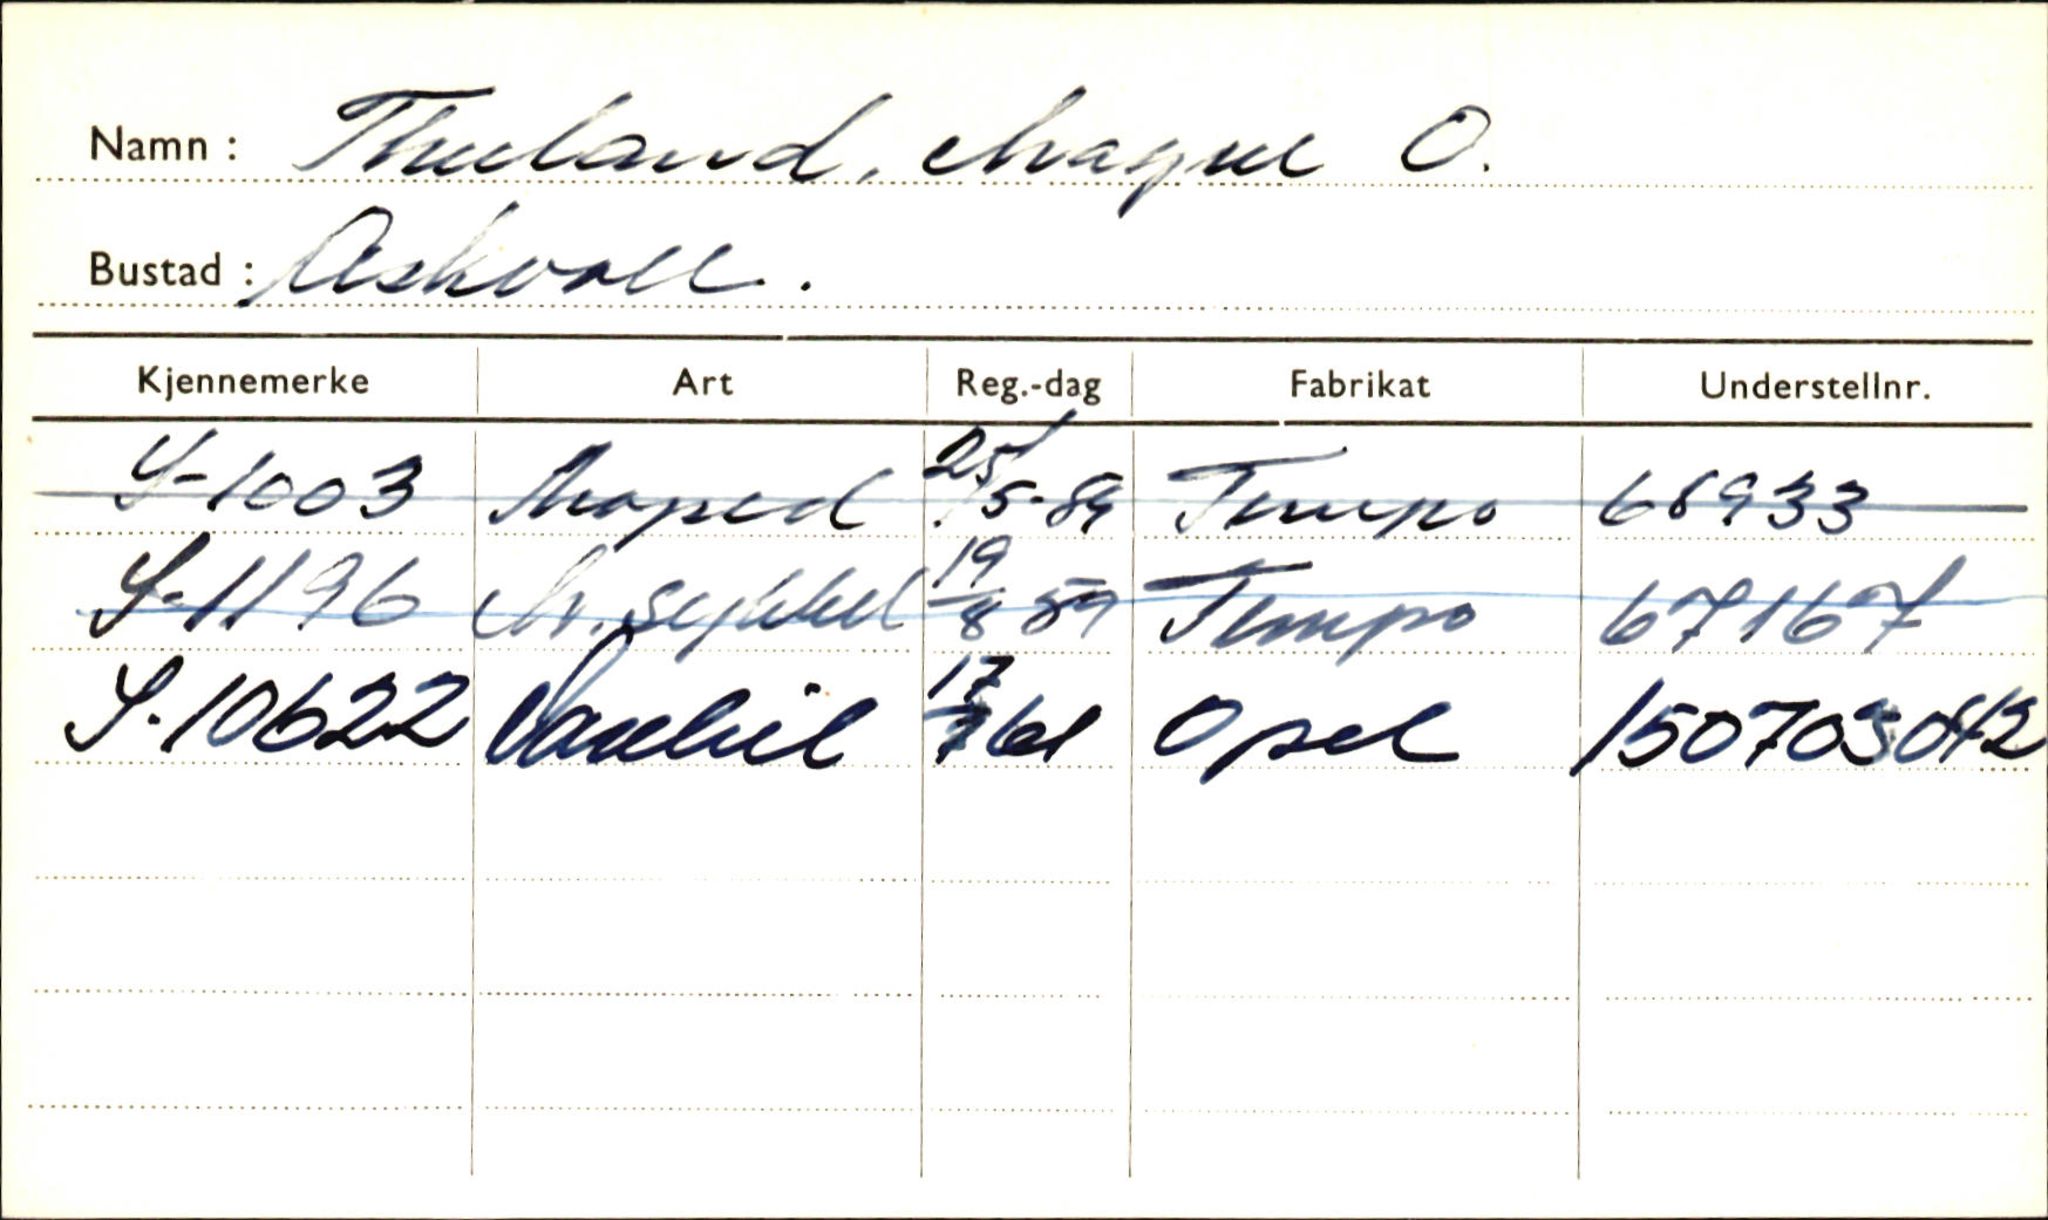 Namn: Thuland, Magne O.
Bustad: Askvoll.
Kjennemerke Art Reg.-dag Fabrikat Understellnr.
S-1003 Moped 25/5-59 Tempo 68933
S-1196 M.sykkel 19/8 59 Tempo 67167
S-10622 Varebil 17/7 61 Opel 150703042